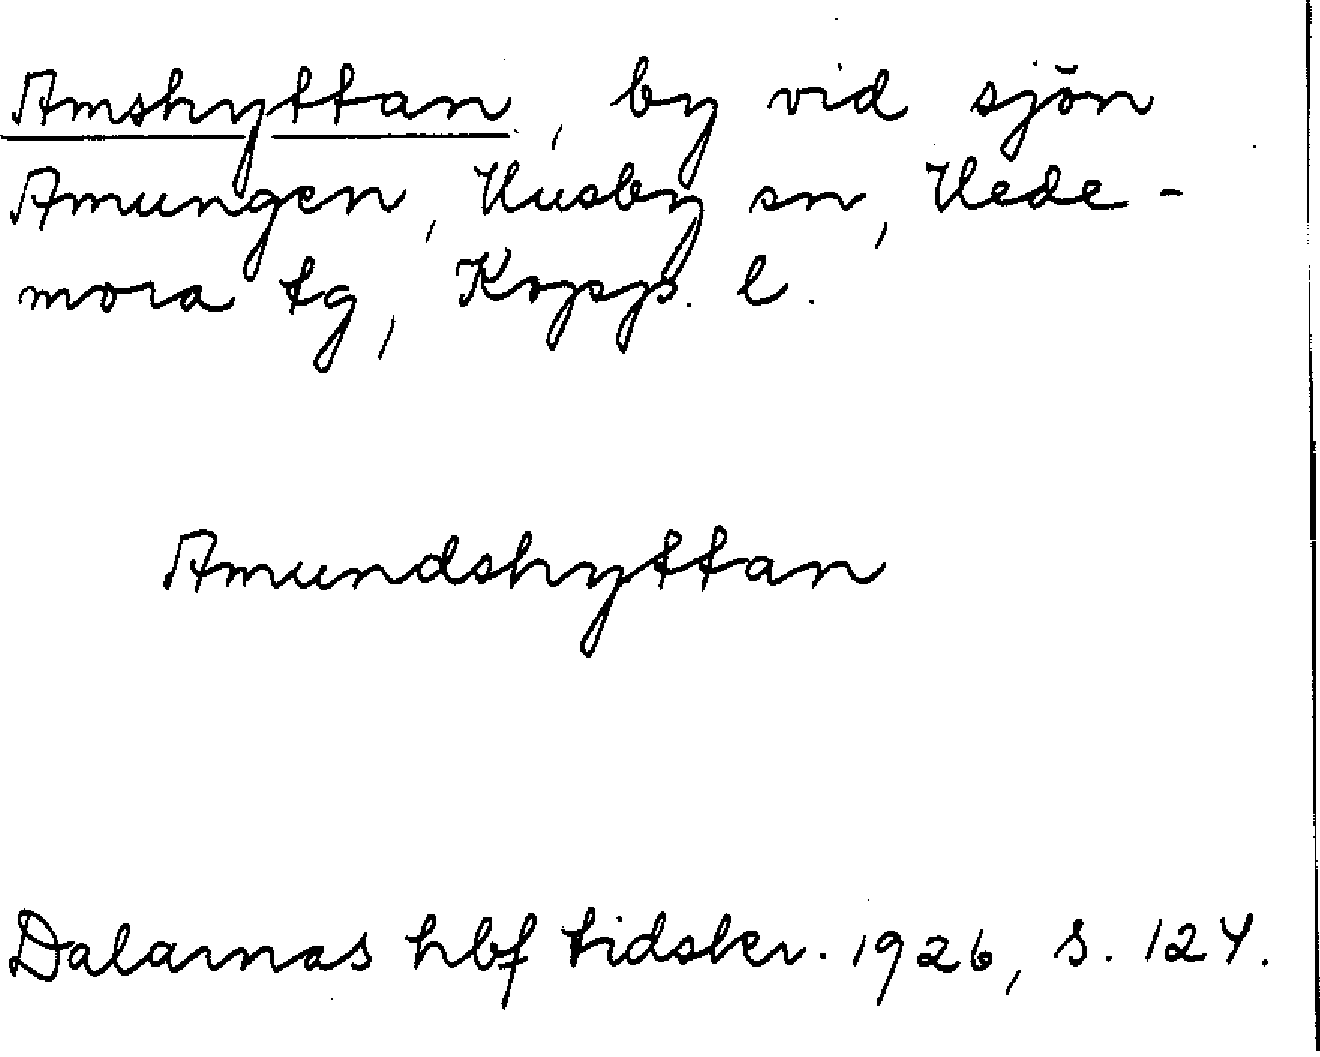 Amshyttan, by vid sjön
Amungen, Husby sn, Hede-
mora tg, Kopp. l.
Amundshyttan
Dalarnas hbf tidskr. 1926, s. 124.